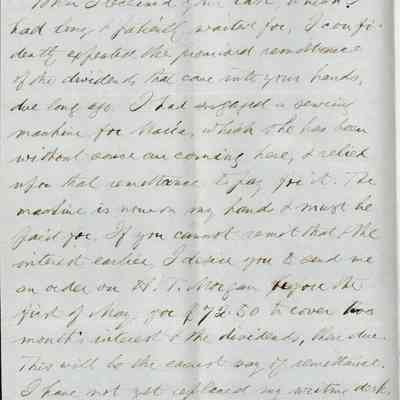 When I received your last, which I
had long & patiently waited for, I confi-
dently expected the promised remittance
of the dividends that came into your hands,
due long ago. I had engaged a sewing
machine for Maria, which she has been
without since our coming here, & relied
upon that remittance to pay for it. The
machine is now on my hands & must be
paid for. If you cannot remit that & the
interest earlier, I desire you to send me
an order on H. T. Morgan before the
first of May, for $72.50 to cover two
month's interest & the dividends, then due.
This will be the easiest way of remittance.
I have not yet replaced my writing desk,